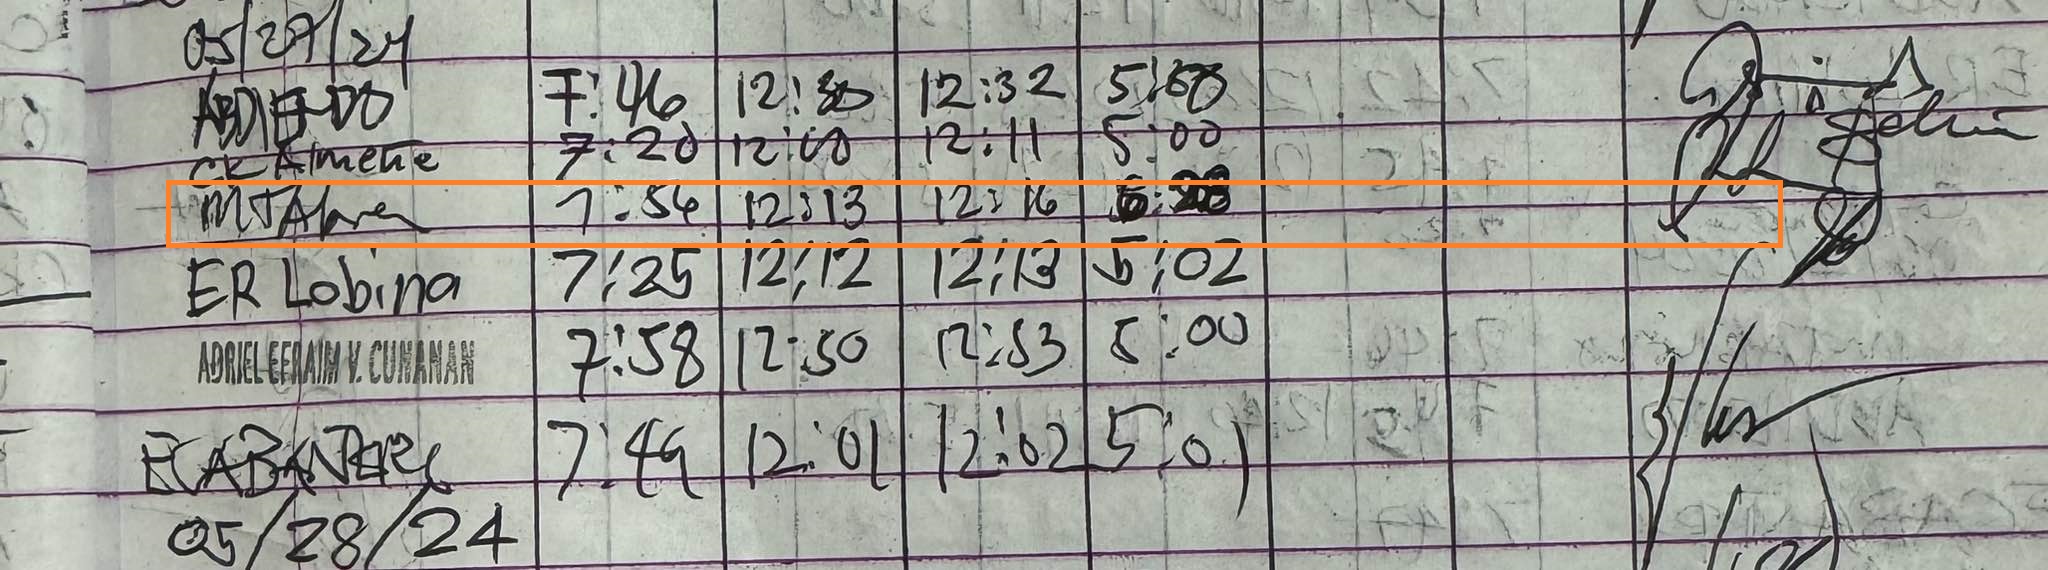 05/27/24
ABDIENDO 7:46 12:30 12:32 5:00
CK Almerie 7:20 12:00 12:11 5:00
MJ 7:56 12:13 12:16
ER Lobina 7:25 12:12 12:13 5:02
ADRIEL EFRAIM V. CUNANAN 7:58 12:50 12:53 5:00
7:49 12:01 12:02 5:01
05/28/24